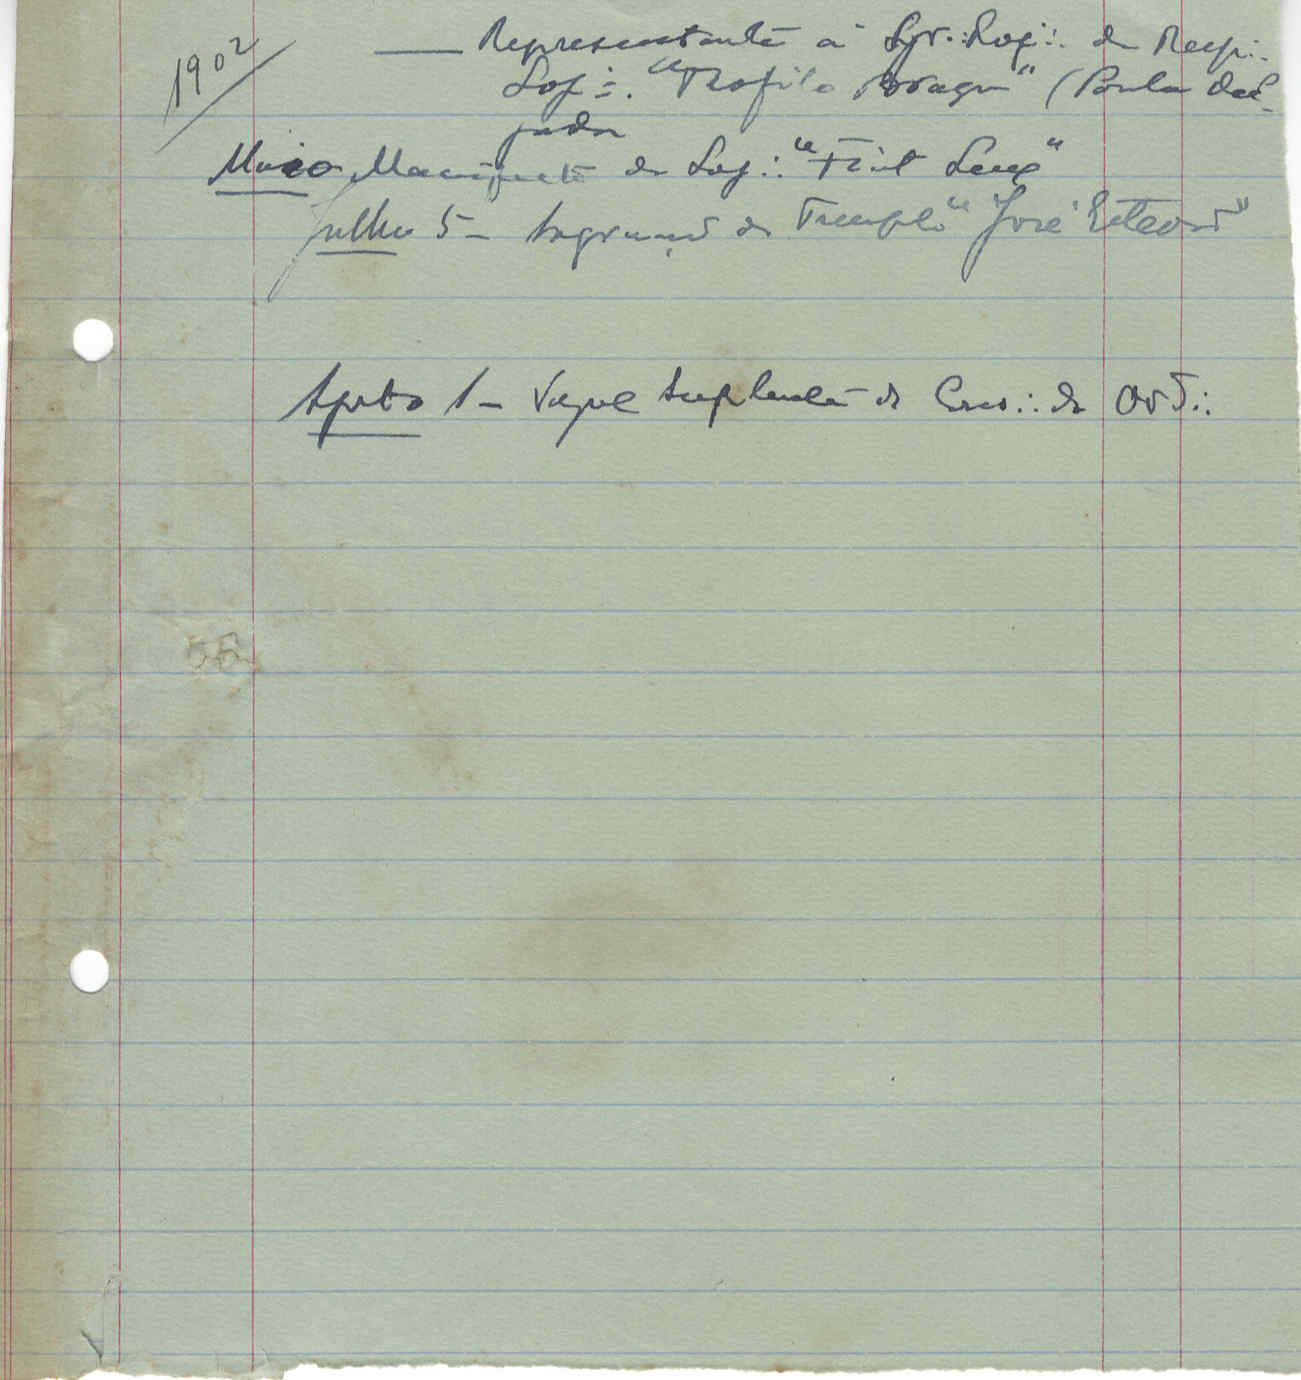 1902
— Representante à Gr∴ Loj∴ da Resp∴
Loj∴ "Teofilo Braga" (Ponta Del-
gada
Maio Manifesto da Loj∴ "Fiat Lux"
Julho 5 - do Templo "José Estevão"
Agosto 1 - Vogal Suplente do Cons∴ da Ord∴
56